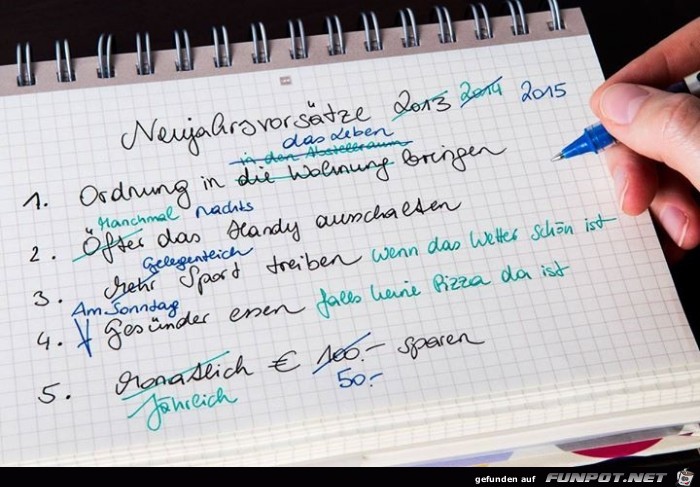 Neujahrsvorsätze 2013 2014 2015
das Leben
in den Abstellraum
1. Ordnung in die Wohnung bringen
Manchmal nachts
2. Öfter das Handy ausschalten
Gelegentlich
3. Mehr Sport treiben wenn das Wetter schön ist
Am Sonntag
4. Gesünder essen falls keine Pizza da ist
5. Monatlich € 100.- sparen
Jährlich 50.-
gefunden auf FUNPOT.NET